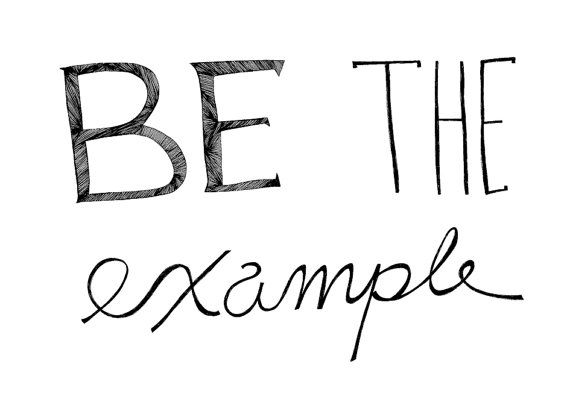 BE THE
example